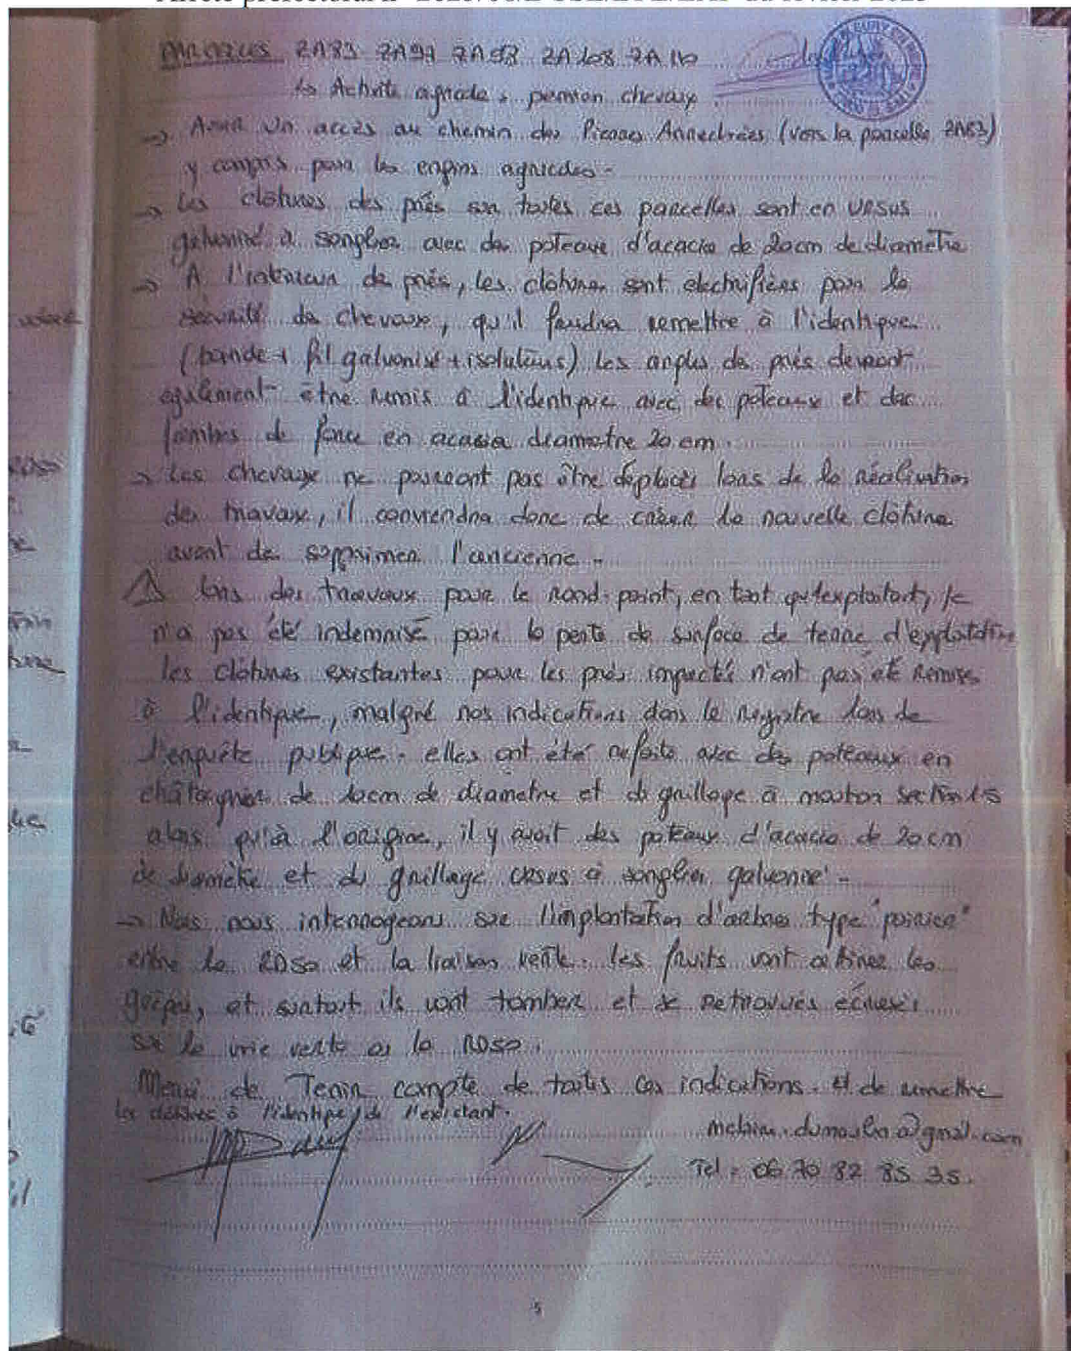 PARCELLES ZA83 ZA97 ZA98 ZA108 ZA110
↳ Activité agricole : pension chevaux.
→ Avoir un accès au chemin des Pierres (vers la parcelle ZA83)
y compris pour les engins agricoles.
→ Les clôtures des prés sur toutes ces parcelles sont en URSUS
galvanisé à sanglier avec des poteaux d'acacia de 20cm de diamètre
→ A l'intérieur des prés, les clôtures sont electrifiées pour la
sécurité des chevaux, qu'il faudra remettre à l'identique
(bande + fil galvanisé + isolateurs) les angles des prés devront
également être remis à l'identique avec des poteaux et des
jambes de force en acacia diametre 20 cm.
→ Les chevaux ne pourront pas être déplacés lors de la réalisation
des travaux, il conviendra donc de créer la nouvelle clôture
avant de supprimer l'ancienne.
⚠ Lors des travaux pour le rond-point, en tant qu'exploitant, je
n'a pas été indemnisé pour la perte de surface de terre d'exploitation
les clôtures existantes pour les prés impactés n'ont pas été remises
à l'identique, malgré nos indications dans le registre lors de
l'enquête publique. elles ont été refaite avec des poteaux en
châtaignier de 10cm de diametre et du grillage à mouton section 15
alors qu'à l'origine, il y avait des poteaux d'acacia de 20 cm
de diamètre et du grillage ursus à sanglier galvanisé.
→ Nous nous interrogeons sur l'implantation d'arbres type "poirier"
entre la RD50 et la liaison verte. les fruits vont attirer les
guêpes, et surtout ils vont tomber et se retrouvés écrasés
sur la voie verte ou la RD50.
Merci de Tenir compte de toutes ces indications. Et de remettre
les clôtures à l'identique de l'existant.
@gmail.com
Tel : 06 70 82 85 35.
5